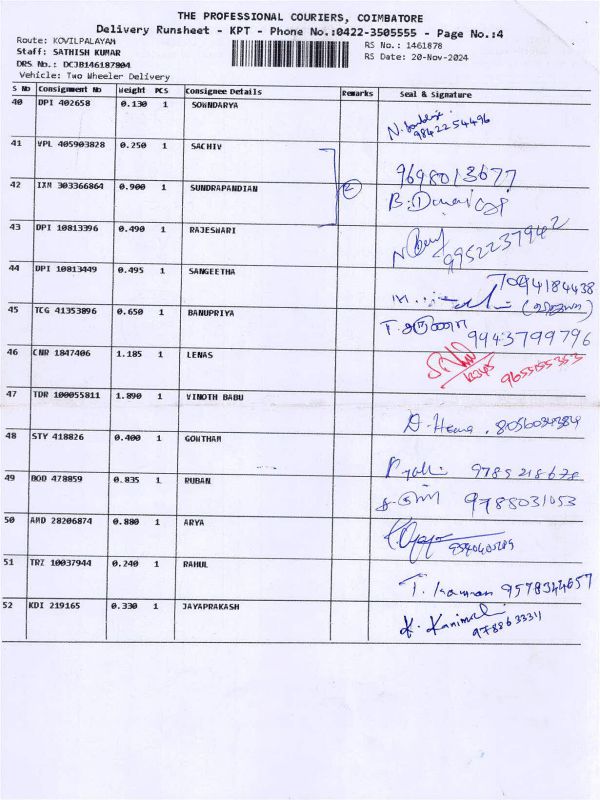 THE PROFESSIONAL COURIERS, COIMBATORE
Delivery Runsheet - KPT - Phone No.:0422-3505555 - Page No.:4
Route: KOVILPALAYAM RS No.: 1461878
Staff: SATHISH KUMAR RS Date: 20-Nov-2024
DRS No.: DCJB146187804
Vehicle: Two Wheeler Delivery
S No Consignment No Weight PCS Consignee Details Remarks Seal & Signature
40 DPI 402658 0.130 1 SOWNDARYA
9842254496
41 VPL 405903828 0.250 1 SACHIV 9698013677
42 IXM 303366864 0.900 1 SUNDRAPANDIAN 2
43 DPI 10813396 0.490 1 RAJESWARI 9952237942
44 DPI 10813449 0.495 1 SANGEETHA 7094184438
45 TCG 41353896 0.650 1 BANUPRIYA 9943799796
46 CNR 1847406 1.185 1 LENAS 9655155353
47 TDR 100055811 1.890 1 VINOTH BABU D. Hema. 8056034384
48 STY 418826 0.400 1 GOWTHAM 9789218678
49 BOD 478859 0.835 1 RUBAN 9788031053
50 AMD 28206874 0.880 1 ARYA
51 TRZ 10037944 0.240 1 RAHUL 9578344657
52 KDI 219165 0.330 1 JAYAPRAKASH K. 978863331